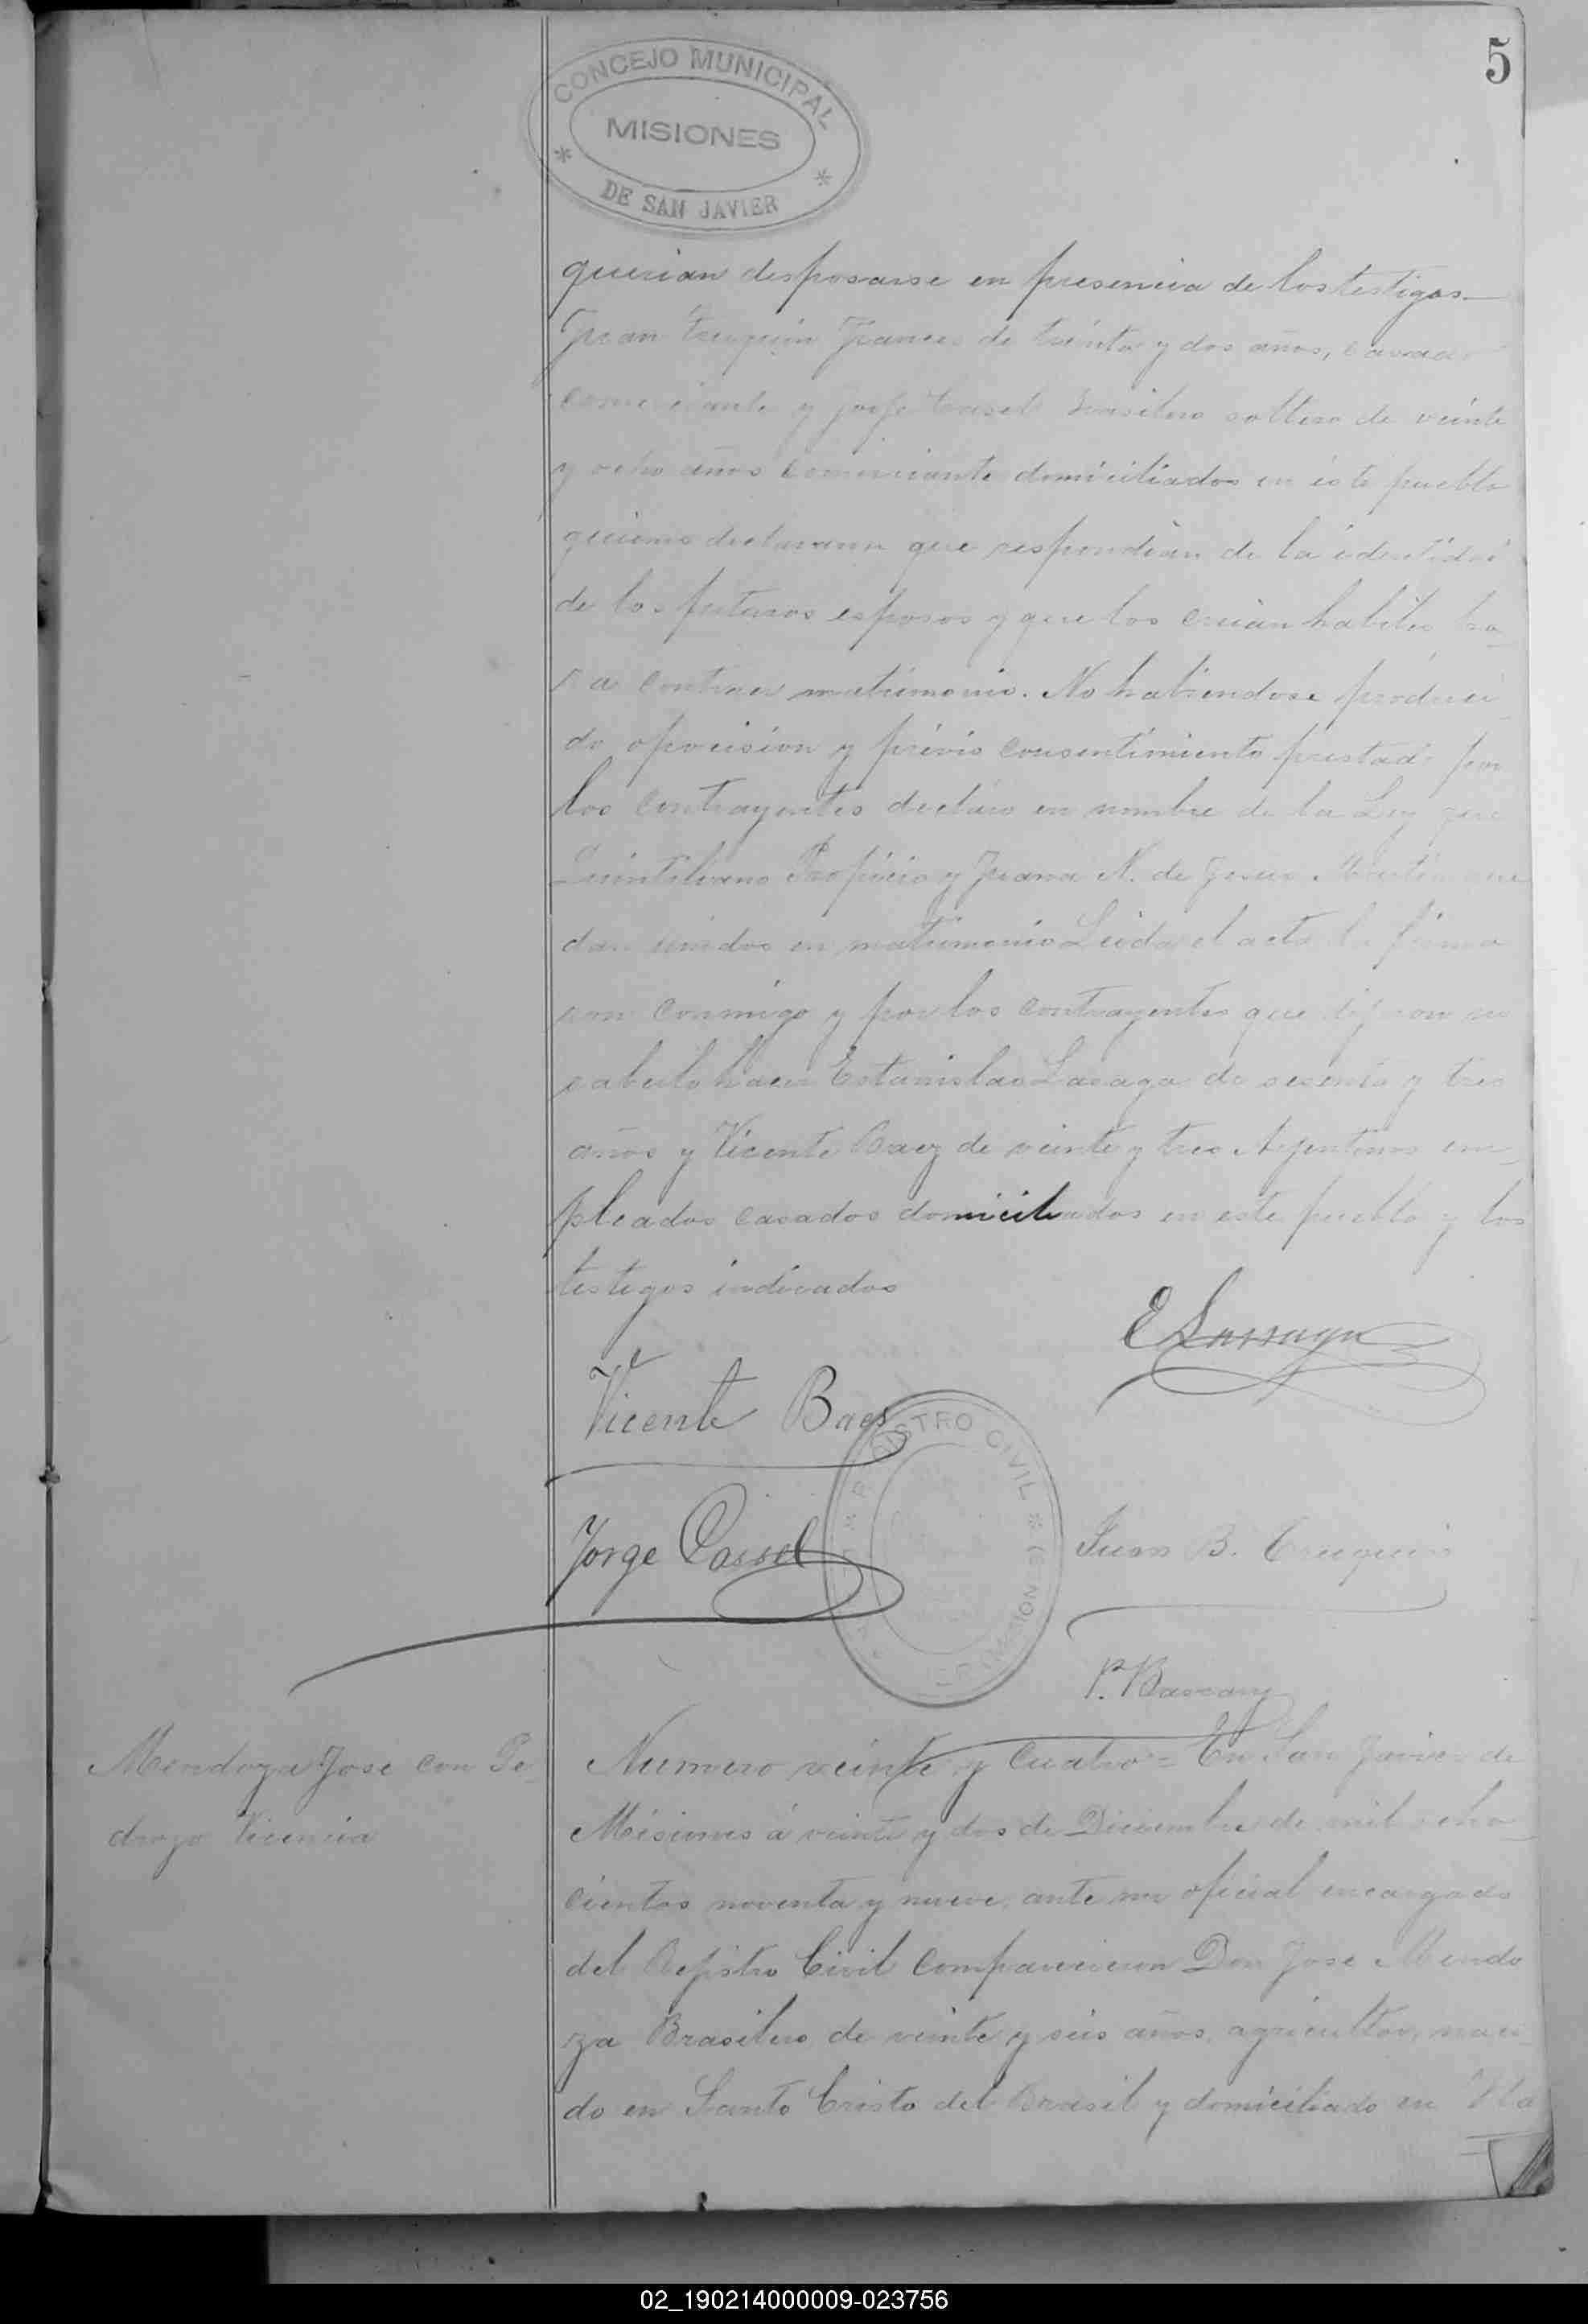 5
CONCEJO MUNICIPAL
MISIONES
DE SAN JAVIER
querian desposarse en presencia de los testigos
Juan Truquin Frances de treinta y dos años, casado
comerciante y Jorje Cassel Brasilero soltero de veinte
y ocho años comerciante domiciliados en este pueblo
quienes declararon que respondian de la identidad
de los futuros esposos y que los creian habiles pa_
ra contraer matrimonio. No habiendose produci_
do oposision y prévio consentimiento prestado por
los contrayentes declaro en nombre de la Ley que
Quintiliano Proficio y Juana N. de Jesus que
dan unidos en matrimonio Leida el acta la firma
ron conmigo y por los contrayentes que dijeron no
saberlo hacer Estanislao Lasaga de sesenta y tres
años y Vicente Baez de veinte y tres Argentinos em_
pleados casados domiciliados en este pueblo y los
testigos indicados
E Lassaga
Vicente Baes
REGISTRO CIVIL
Jorge Cassel
Juan B. Truquin
(MISIONES)
P. Bascary
Mendoza Jose con Pe_
drozo Vicencia
Numero veinte y cuatro = En San Javier de
Misiones á veinte y dos de Diciembre de mil ocho_
cientos noventa y nueve, ante mi oficial encargado
del Rejistro Civil comparecieron Don Jose Mendo
za Brasilero de veinte y seis años, agricultor, naci_
do en Santo Cristo del Brasil y domiciliado en
02_190214000009-023756